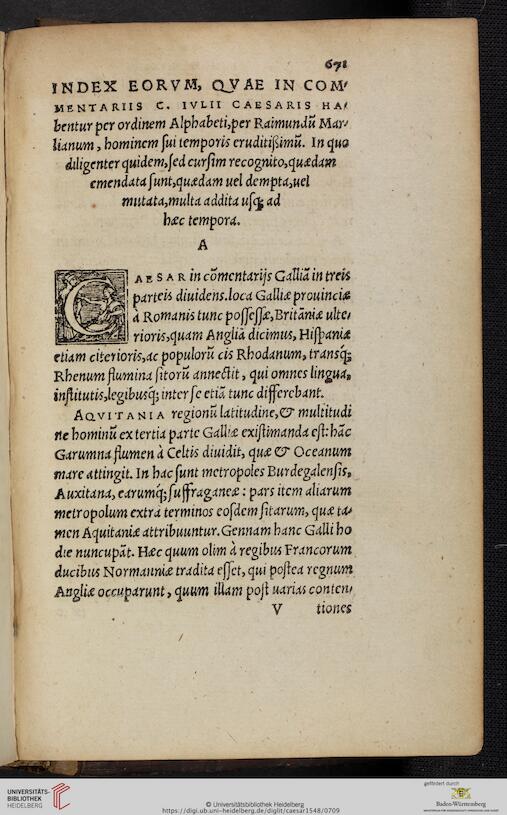 671
INDEX EORVM, QVAE IN COM-
MENTARIIS C. IVLII CAESARIS HA-
bentur per ordinem Alphabeti, per Raimundũ Mar-
lianum, hominem sui temporis eruditißimũ. In quo
diligenter quidem, sed cursim recognito, quædam
emendata sunt, quædam uel dempta, uel
mutata, multa addita usq; ad
hæc tempora.
A
CAESAR in cõmentarijs Galliã in treis
parteis diuidens. loca Galliæ prouinciæ
à Romanis tunc possessæ, Britãniæ ulte-
rioris, quam Angliã dicimus, Hispaniæ
etiam citerioris, ac populorũ cis Rhodanum, transq;
Rhenum flumina sitorũ annectit, qui omnes lingua,
institutis, legibusq; inter se etiã tunc differebant.
AQVITANIA regionũ latitudine, & multitudi
ne hominũ ex tertia parte Galliæ existimanda est: hãc
Garumna flumen à Celtis diuidit, quæ & Oceanum
mare attingit. In hac sunt metropoles Burdegalensis,
Auxitana, earumq; suffraganeæ: pars item aliarum
metropolum extra terminos eosdem sitarum, quæ ta-
men Aquitaniæ attribuuntur. Gennam hanc Galli ho
die nuncupãt. Hæc quum olim à regibus Francorum
ducibus Normanniæ tradita esset, qui postea regnum
Angliæ occuparunt, quum illam post uarias conten-
V tiones
UNIVERSITÄTS-
BIBLIOTHEK
HEIDELBERG
© Universitätsbibliothek Heidelberg
https://digi.ub.uni-heidelberg.de/diglit/caesar1548/0709
gefördert durch
Baden-Württemberg